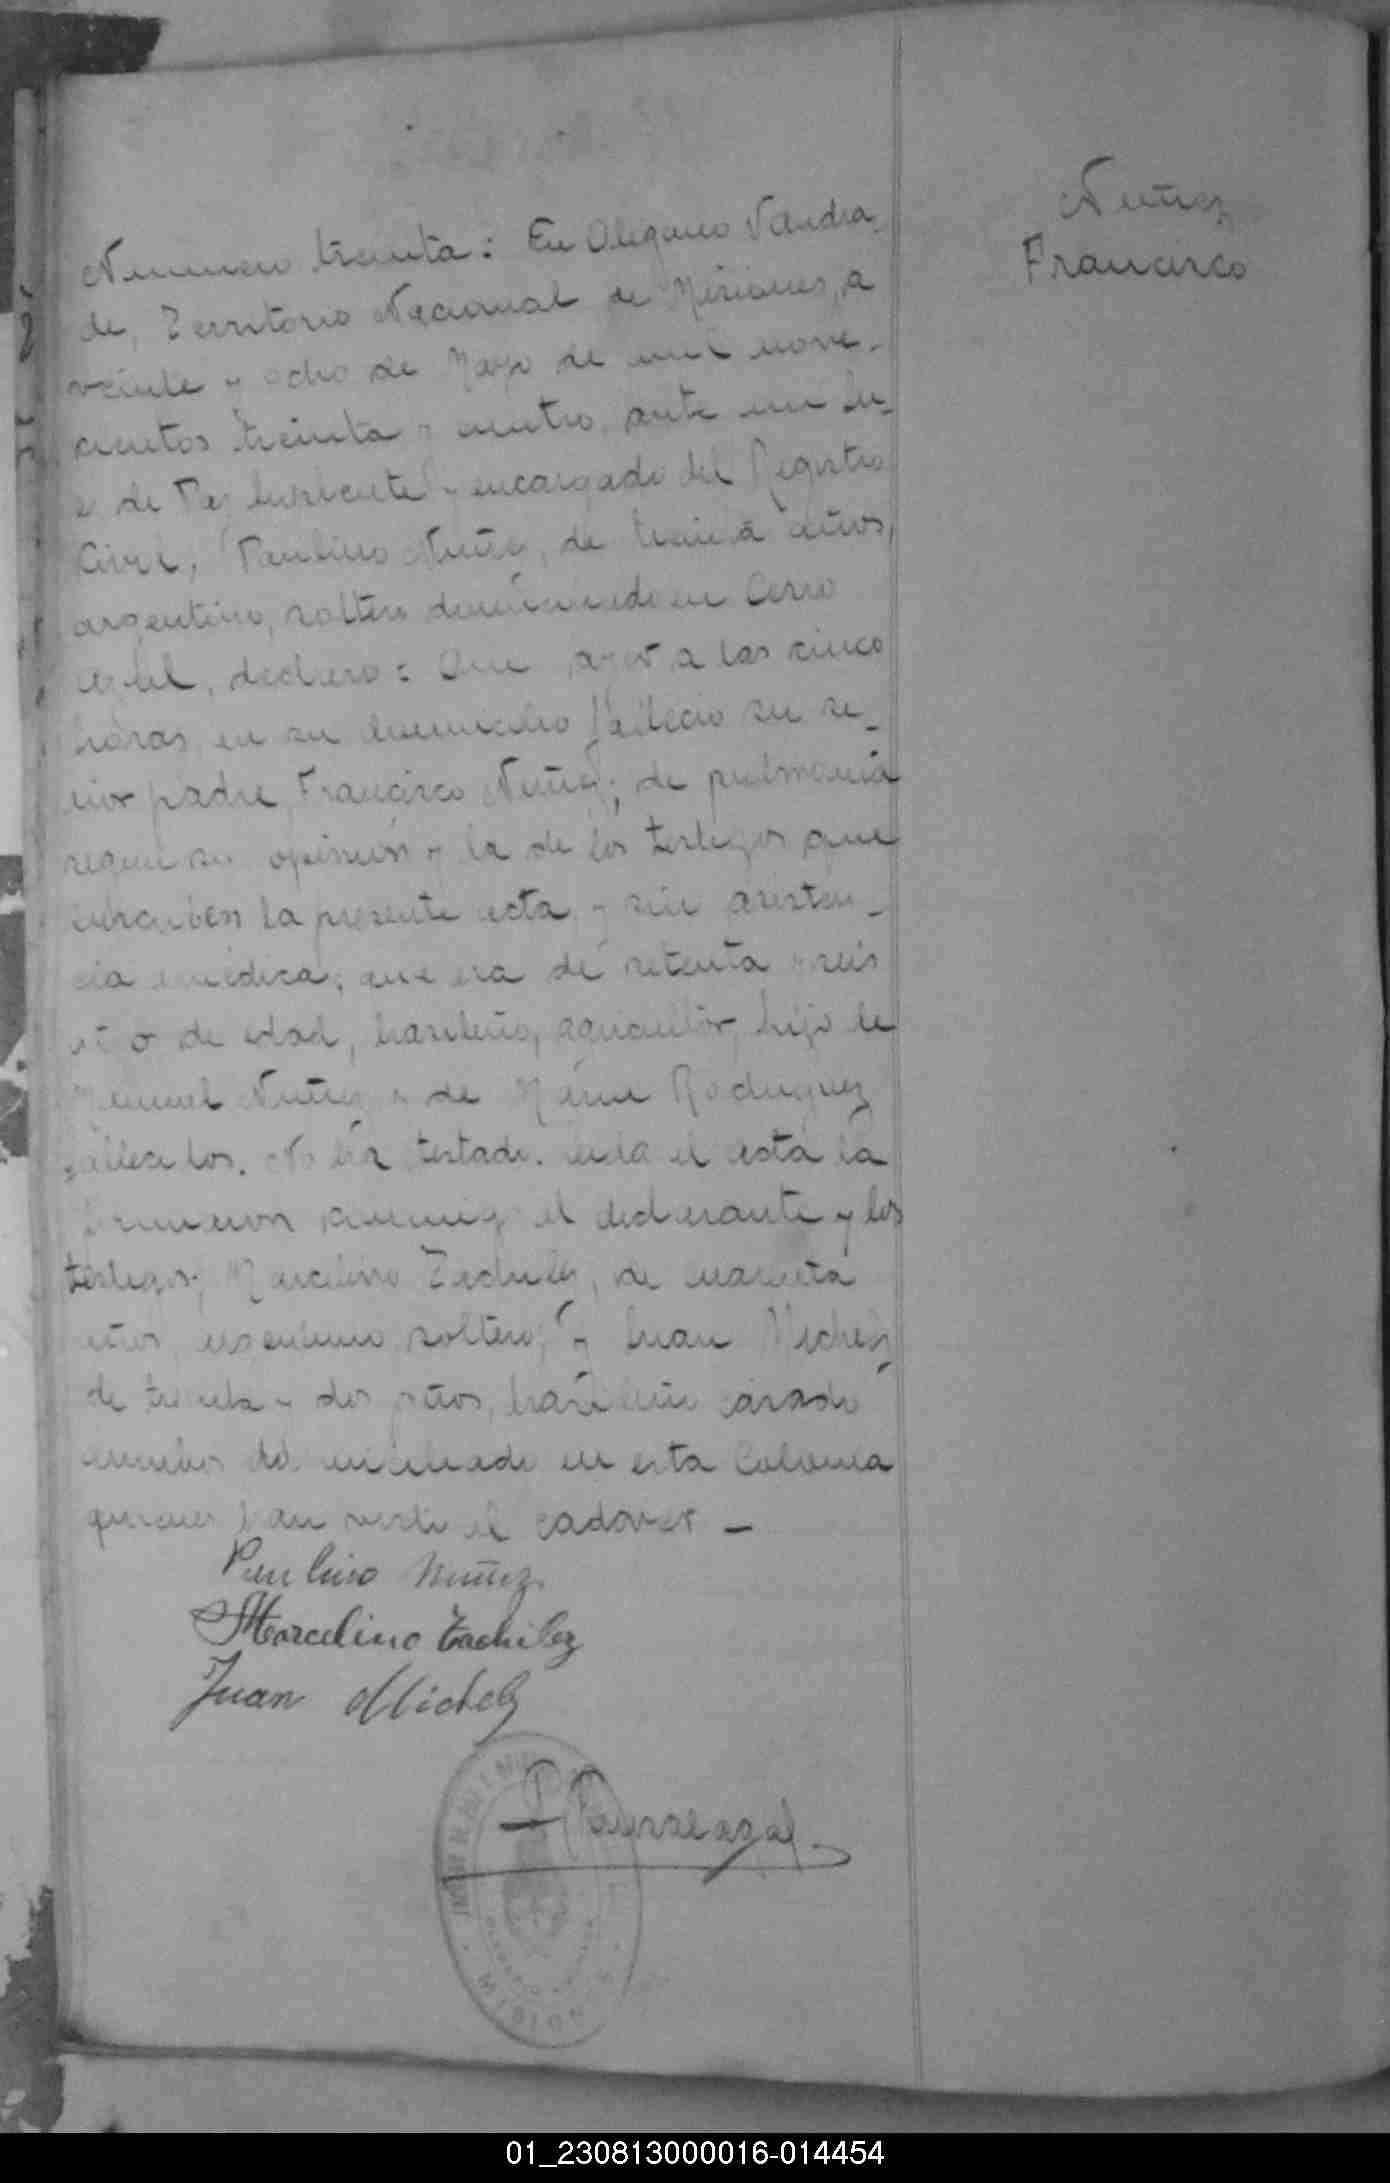 Nuñez
Francisco
Numero treinta: En Olegario V. Andra-
de, Territorio Nacional de Misiones, a
veinte y ocho de Mayo de mil nove-
cientos treinta y cuatro, ante mi Ju-
ez de Paz Suplente y encargado del Registro
Civil, Paulino Nuñez, de treinta años,
argentino, soltero domiciliado en Cerro
Azul, declaro: Que ayer a las cinco
horas, en su domicilio fallecio su se-
ñor padre Francisco Nuñez; de pulmonia
segun su opinión y la de los testigos que
suscriben la presente acta, y sin asisten-
cia medica; que era de setenta y seis
año de edad, brasileño, agricultor, hijo de
Manuel Nuñez y de Maria Rodriguez
fallecidos. No ha testado. Leida el acta la
firmaron conmigo el declarante y los
testigos; Marcelino Tachilez, de cuarenta
años, argentino soltero; y Juan Michelz
de treinta y dos años, brasileño casado
ambos domiciliado en esta Colonia
quienes han visto el cadaver —
Paulino Nuñez
Marcelino Tachilez
Juan Michelz
MISIONES
01_230813000016-014454